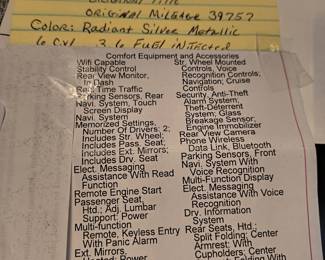 ORIGINAL MILEAGE 39757
COLOR: Radiant Silver Metallic
6 Cyl 3.6 Fuel INJECTED
Comfort Equipment and Accessories
Wifi Capable
Stability Control
Rear View Monitor,
In Dash
Real Time Traffic
Parking Sensors, Rear
Navi. System, Touch
Screen Display
Navi. System
Memorized Settings,
Number Of Drivers: 2;
Includes Str. Wheel;
Includes Pass. Seat;
Includes Ext. Mirrors;
Includes Drv. Seat
Elect. Messaging
Assistance With Read
Function
Remote Engine Start
Passenger Seat,
Htd.; Adj. Lumbar
Support: Power
Multi-function
Remote, Keyless Entry
With Panic Alarm
Ext. Mirrors,
Heated; Power
Str. Wheel Mounted
Controls, Voice
Recognition Controls;
Navigation; Cruise
Control
Security, Anti-Theft
Alarm System;
Theft-Deterrent
System; Glass
Breakage Sensor;
Engine Immobilizer
Rear View Camera
Phone Wireless
Data Link, Bluetooth
Parking Sensors, Front
Navi. System With
Voice Recognition
Multi-Function Display
Elect. Messaging
Assistance With Voice
Recognition
Drv. Information
System
Rear Seats, Htd.;
Split Folding; Center
Armrest: With
Cupholders; Center
Folding With